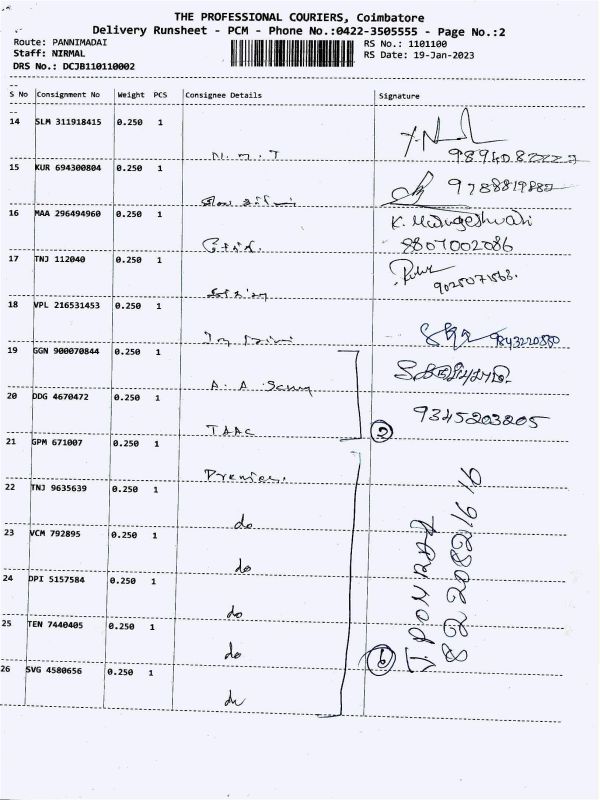 THE PROFESSIONAL COURIERS, Coimbatore
Delivery Runsheet - PCM - Phone No.:0422-3505555 - Page No.:2
Route: PANNIMADAI
RS No.: 1101100
Staff: NIRMAL
RS Date: 19-Jan-2023
DRS No.: DCJB110110002
S No Consignment No Weight PCS Consignee Details Signature
14 SLM 311918415 0.250 1
N. M. T
15 KUR 694300804 0.250 1
9788819887
16 MAA 296494960 0.250 1
K. Murugeshwari
9807002086
17 TNJ 112040 0.250 1
9025071568.
18 VPL 216531453 0.250 1
9843220880
19 GGN 900070844 0.250 1
A. A
20 DDG 4670472 0.250 1
9345203205
TAAC
2
21 GPM 671007 0.250 1
Premier.
22 TNJ 9635639 0.250 1
do
23 VCM 792895 0.250 1
do
24 DPI 5157584 0.250 1
do
25 TEN 7440405 0.250 1
do
6
26 SVG 4580656 0.250 1
do